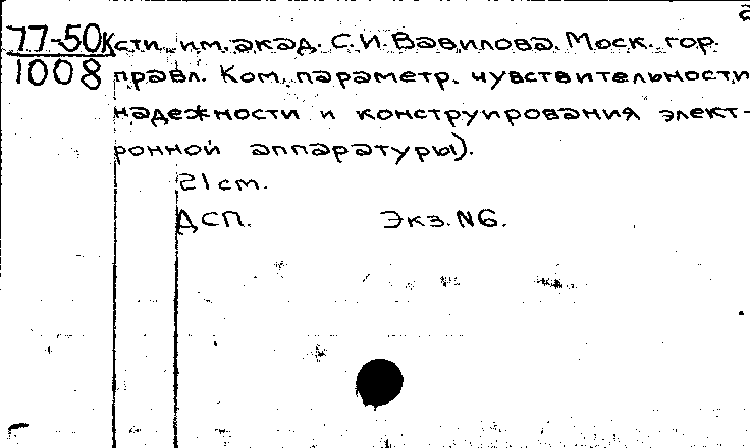 77-50к сти им. акад. С.И. Вавилова. Моск. гор.
1008 правл. Ком. параметр. чувствительности
надежности и конструирования элект-
ронной аппаратуры).
21 cm.
ДСП. Экз. №6.